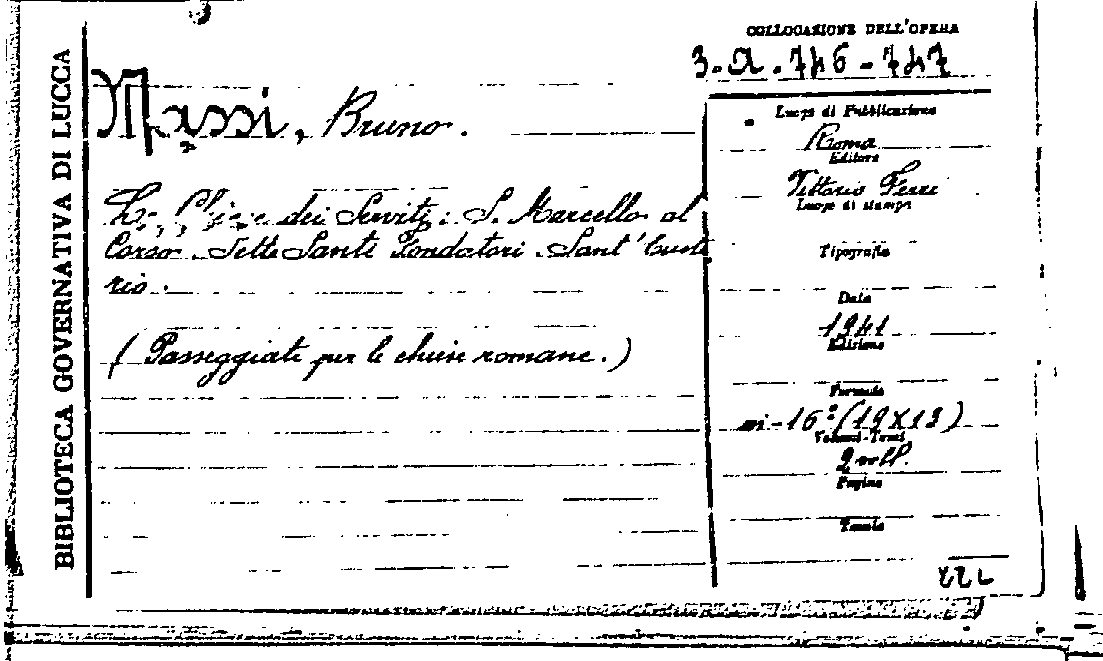 BIBLIOTECA GOVERNATIVA DI LUCCA
COLLOCAZIONE DELL'OPERA
3.A.746-747
Massi, Bruno.
Le Chiese dei Serviti: S. Marcello al
Corso. Sette Santi Fondatori. Sant'Euste
rio.
(Passeggiate per le chiese romane.)
Luogo di Pubblicazione
Roma
Editore
Vittorio Ferri
Luogo di stampa
Tipografia
Data
1941
Edizione
Formato
in-16º (19x13)
Volumi-Tomi
2 voll.
Pagine
Tavole